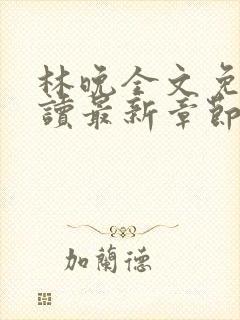 林晚全文免
讀最新章節
加蘭德